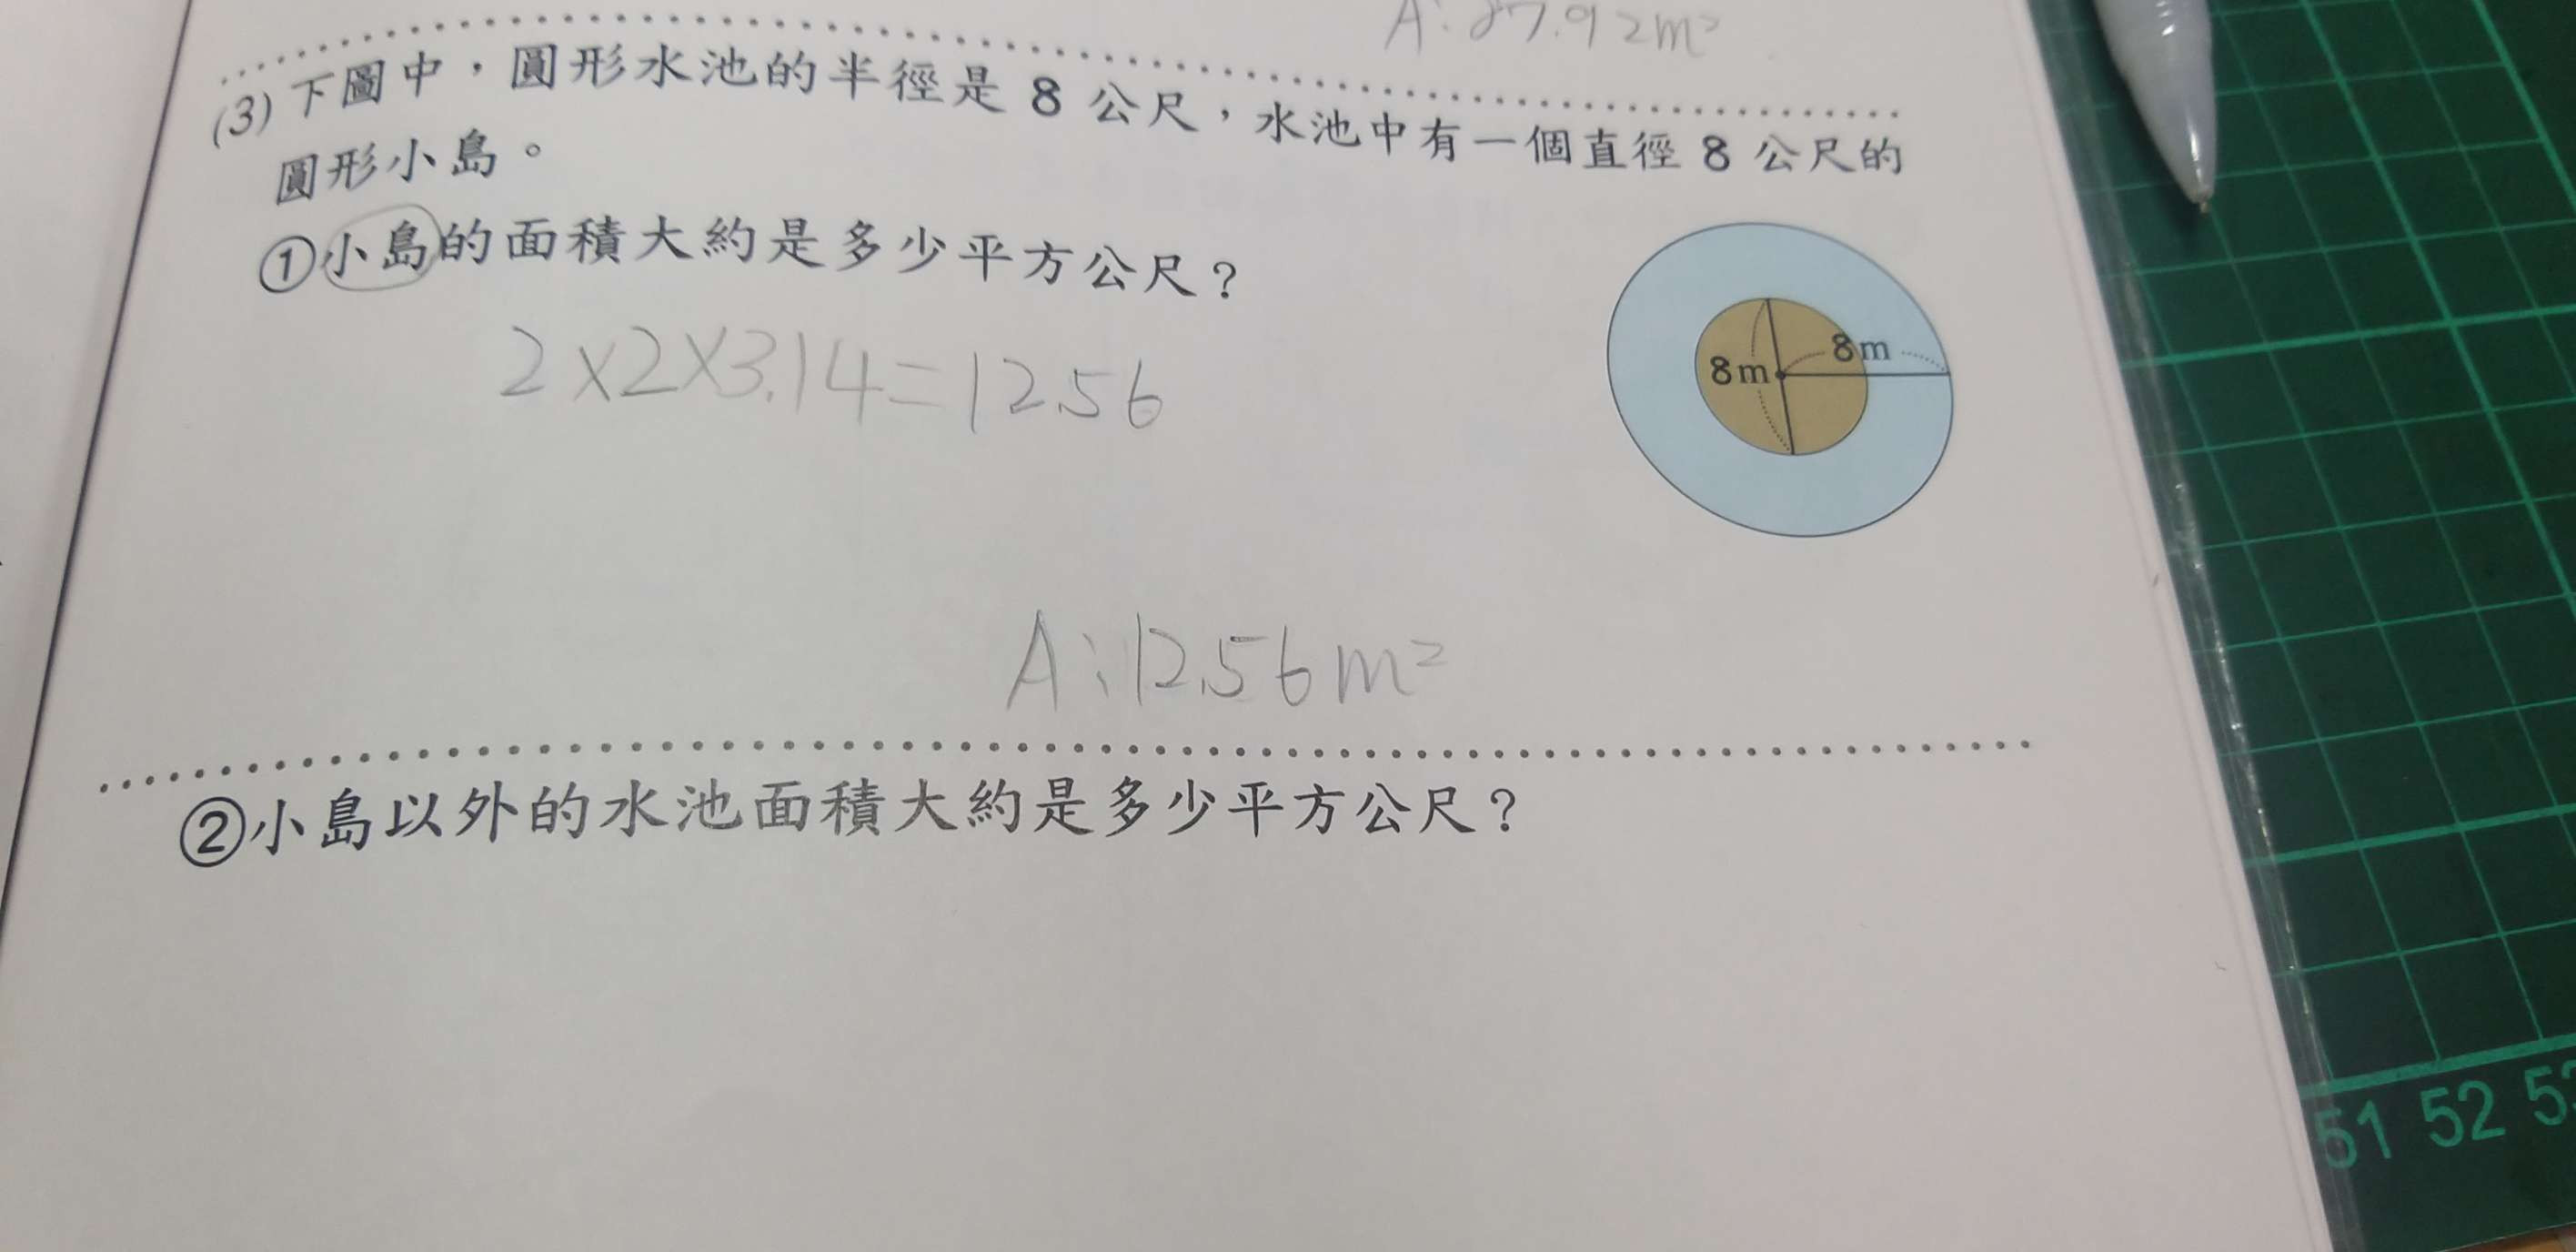 A:87.92m²
(3)下圖中，圓形水池的半徑是 8 公尺，水池中有一個直徑 8 公尺的
圓形小島。
①小島的面積大約是多少平方公尺？
8m
8m
2×2×3.14=12.56
A:12.56m²
②小島以外的水池面積大約是多少平方公尺？
51 52